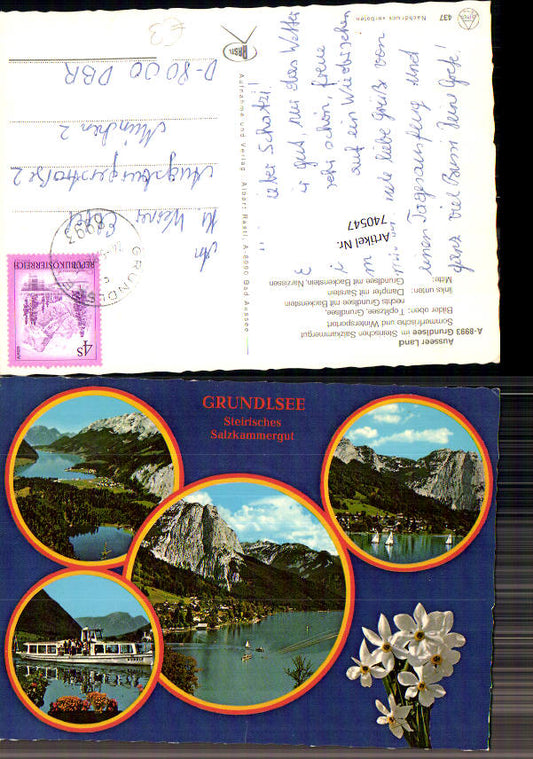 437
Nachdruck verboten
lieber Schatzi!
gut, das Wetter
sehr schön, freue
auf ein Wiedersehen
viele liebe Grüße von
einem Tagesausflug und
ganz viel Bussi Deine Grete!
Artikel Nr.
740547
Ausseer Land
A-8993 Grundlsee im Steirischen Salzkammergut
Sommerfrische und Wintersportort
Bilder oben: Toplitzsee, Grundlsee,
rechts Grundlsee mit Backenstein
links unten: Dampfer mit Sarstein
Mitte: Grundlsee mit Backenstein, Narzissen
Aufnahme und Verlag: Albert Rastl, A-8990 Bad Aussee
Rastl
REPUBLIK ÖSTERREICH
4s
GRUNDLSEE
8993
An
Augsburgerstraße 2
München 2
D-8000 DBR
€3
GRUNDLSEE
Steirisches
Salzkammergut